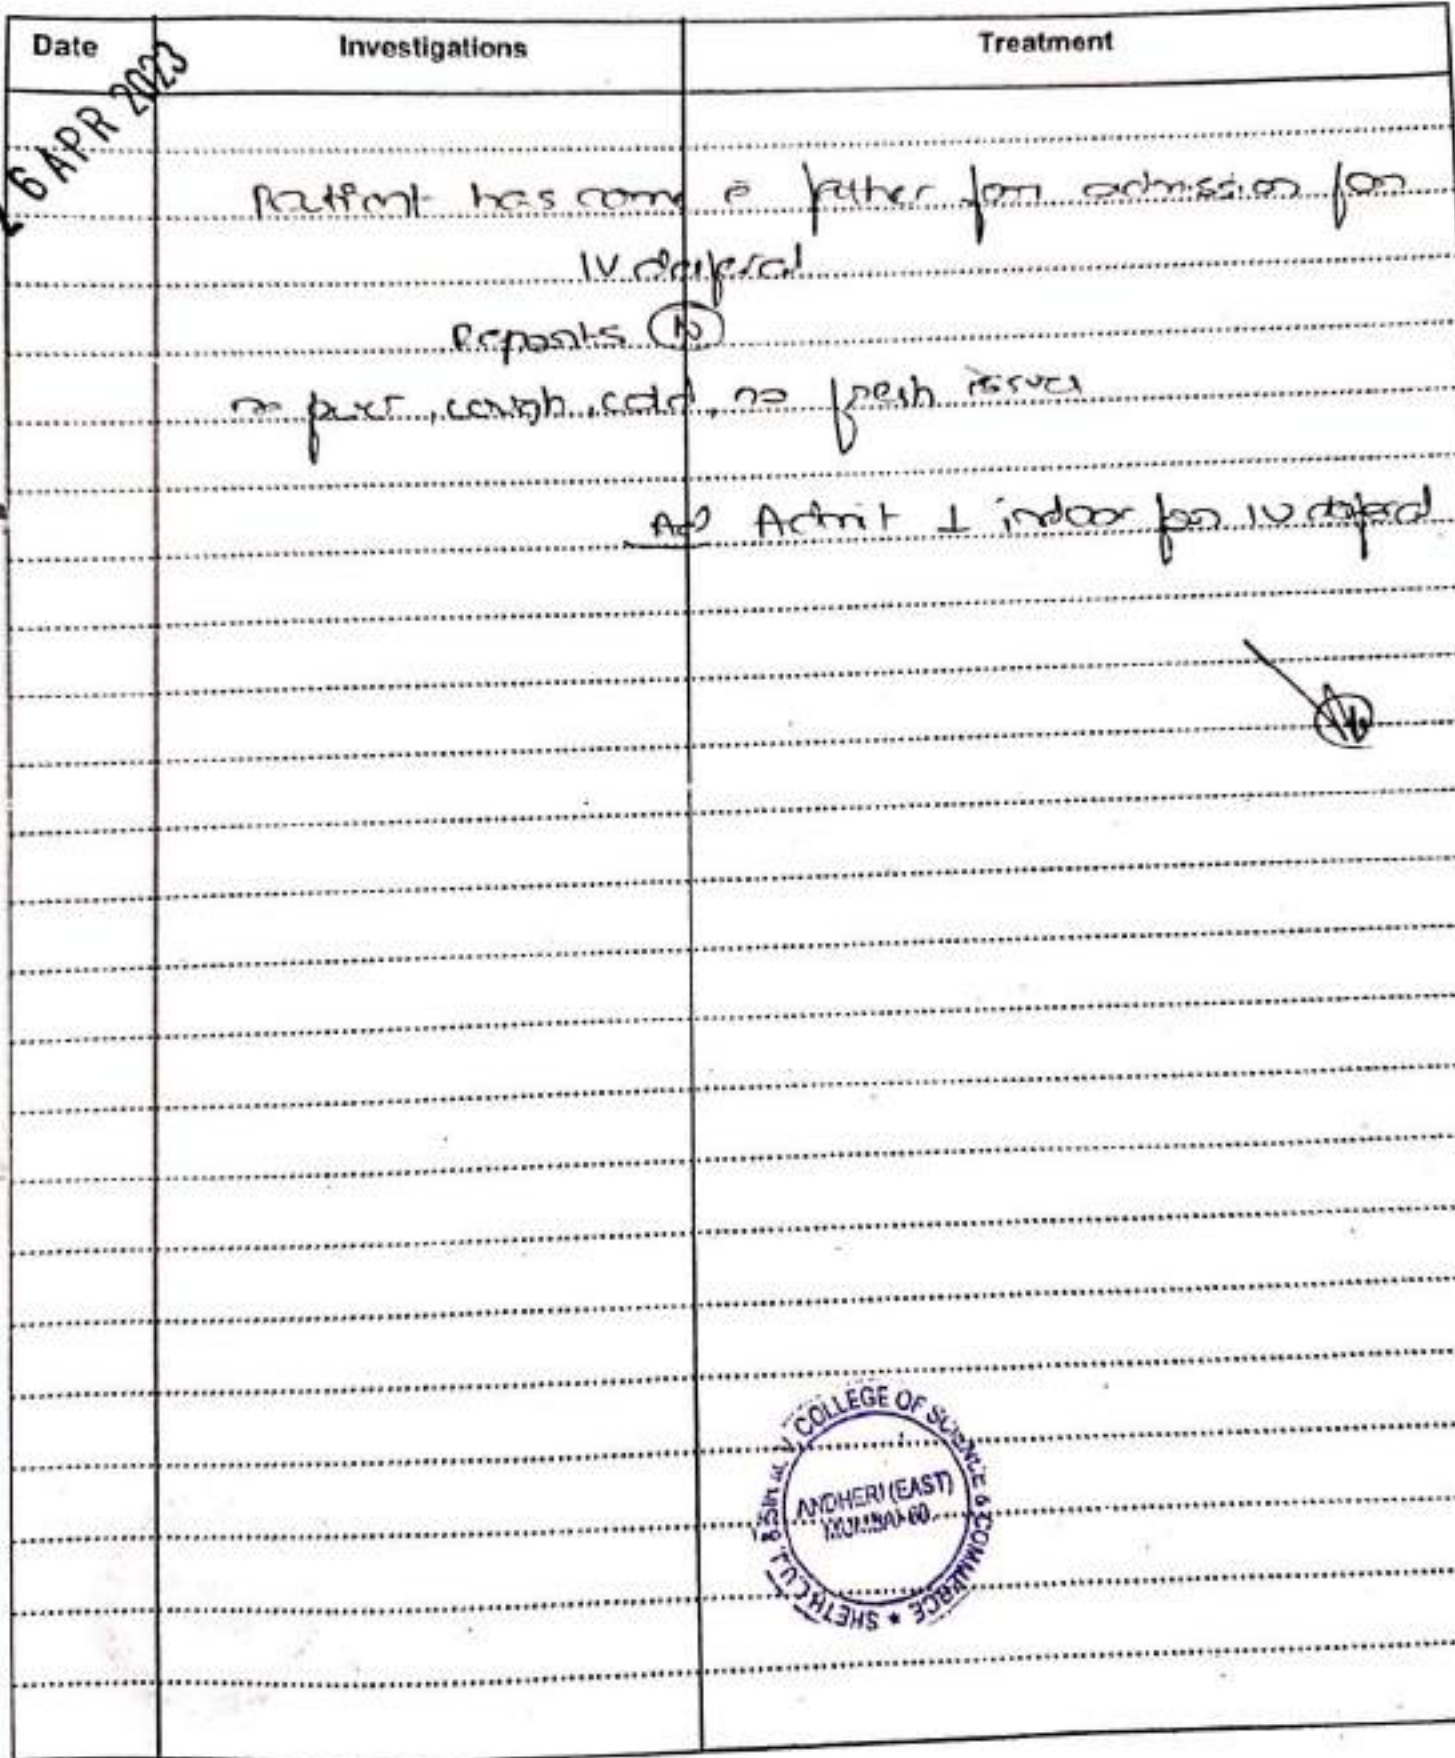 Date Investigations Treatment
2 6 APR 2023
Patient has come c̄ father for admission for
IV desferal
Reports (N)
no fever, cough, cold, no fresh issues
Adv Admit 1 indoor for IV desferal
COLLEGE OF SCIENCE & COMMERCE ★ SHETH L.U.J. & SIR M.V.
ANDHERI (EAST)
MUMBAI-69.